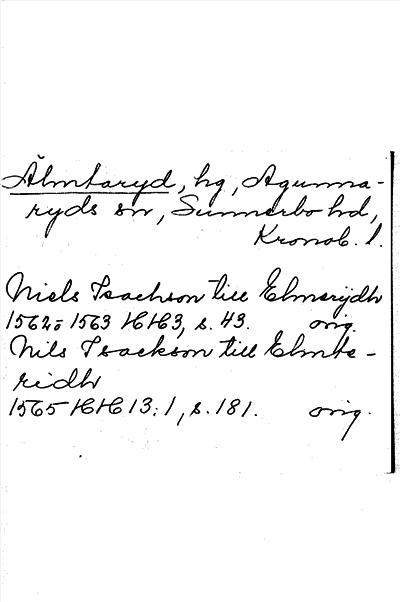 Älmtaryd, hg, Agunna-
ryds sn, Sunnerbo hd,
Kronob. l.
Niels Isachson till Elmerijdh
1562-1563 HH3, s. 43. orig.
Nils Isackson till Elmte-
ridh
1565 HH 13:1, s. 181. orig.